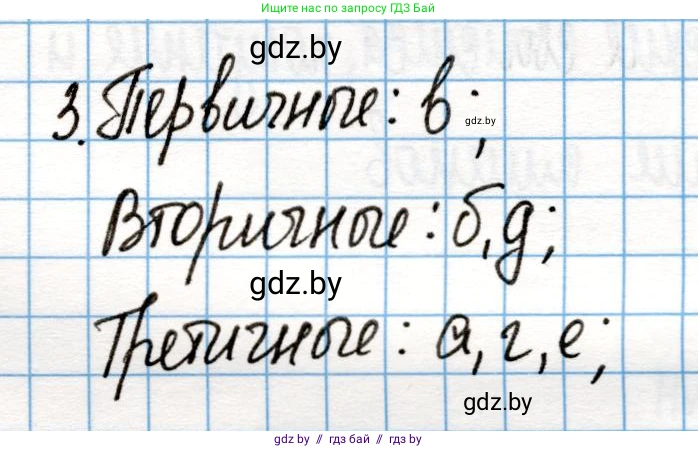 Ищите нас по запросу ГДЗ Бай
gdz.by
3. Первичные: в;
gdz.by
Вторичные: б, д;
gdz.by
Третичные: а, г, е;
gdz.by
gdz.by // гдз бай // gdz.by